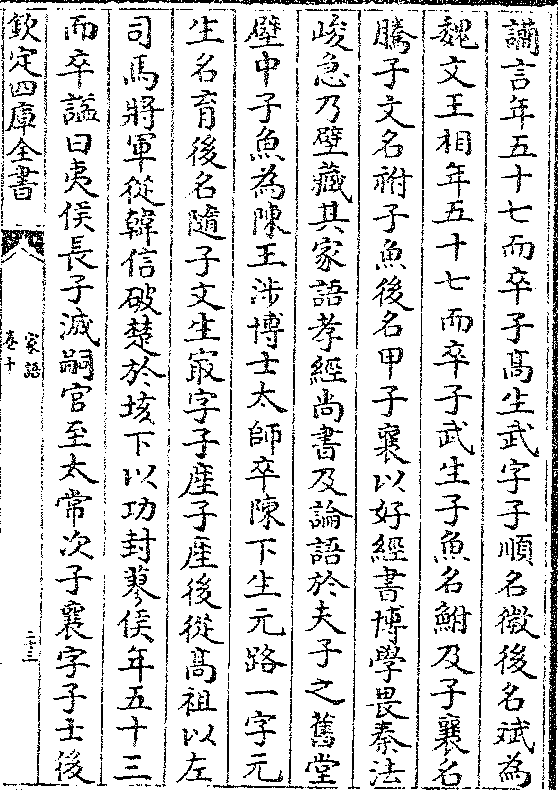 讕言年五十七而卒子髙生武字子順名㣲後名斌為
魏文王相年五十七而卒子武生子魚名鮒及子襄名
騰子文名祔子魚後名甲子襄以好經書博學畏秦法
峻急乃壁藏其家語孝經尚書及論語於夫子之舊堂
壁中子魚為陳王涉博士太師卒陳下生元路一字元
生名育後名隨子文生㝡字子産子産後從髙祖以左
司馬將軍從韓信破楚於垓下以功封蓼侯年五十三
而卒諡曰夷侯長子滅嗣官至太常次子襄字子士後
欽定四庫全書
家語
卷十
二十三